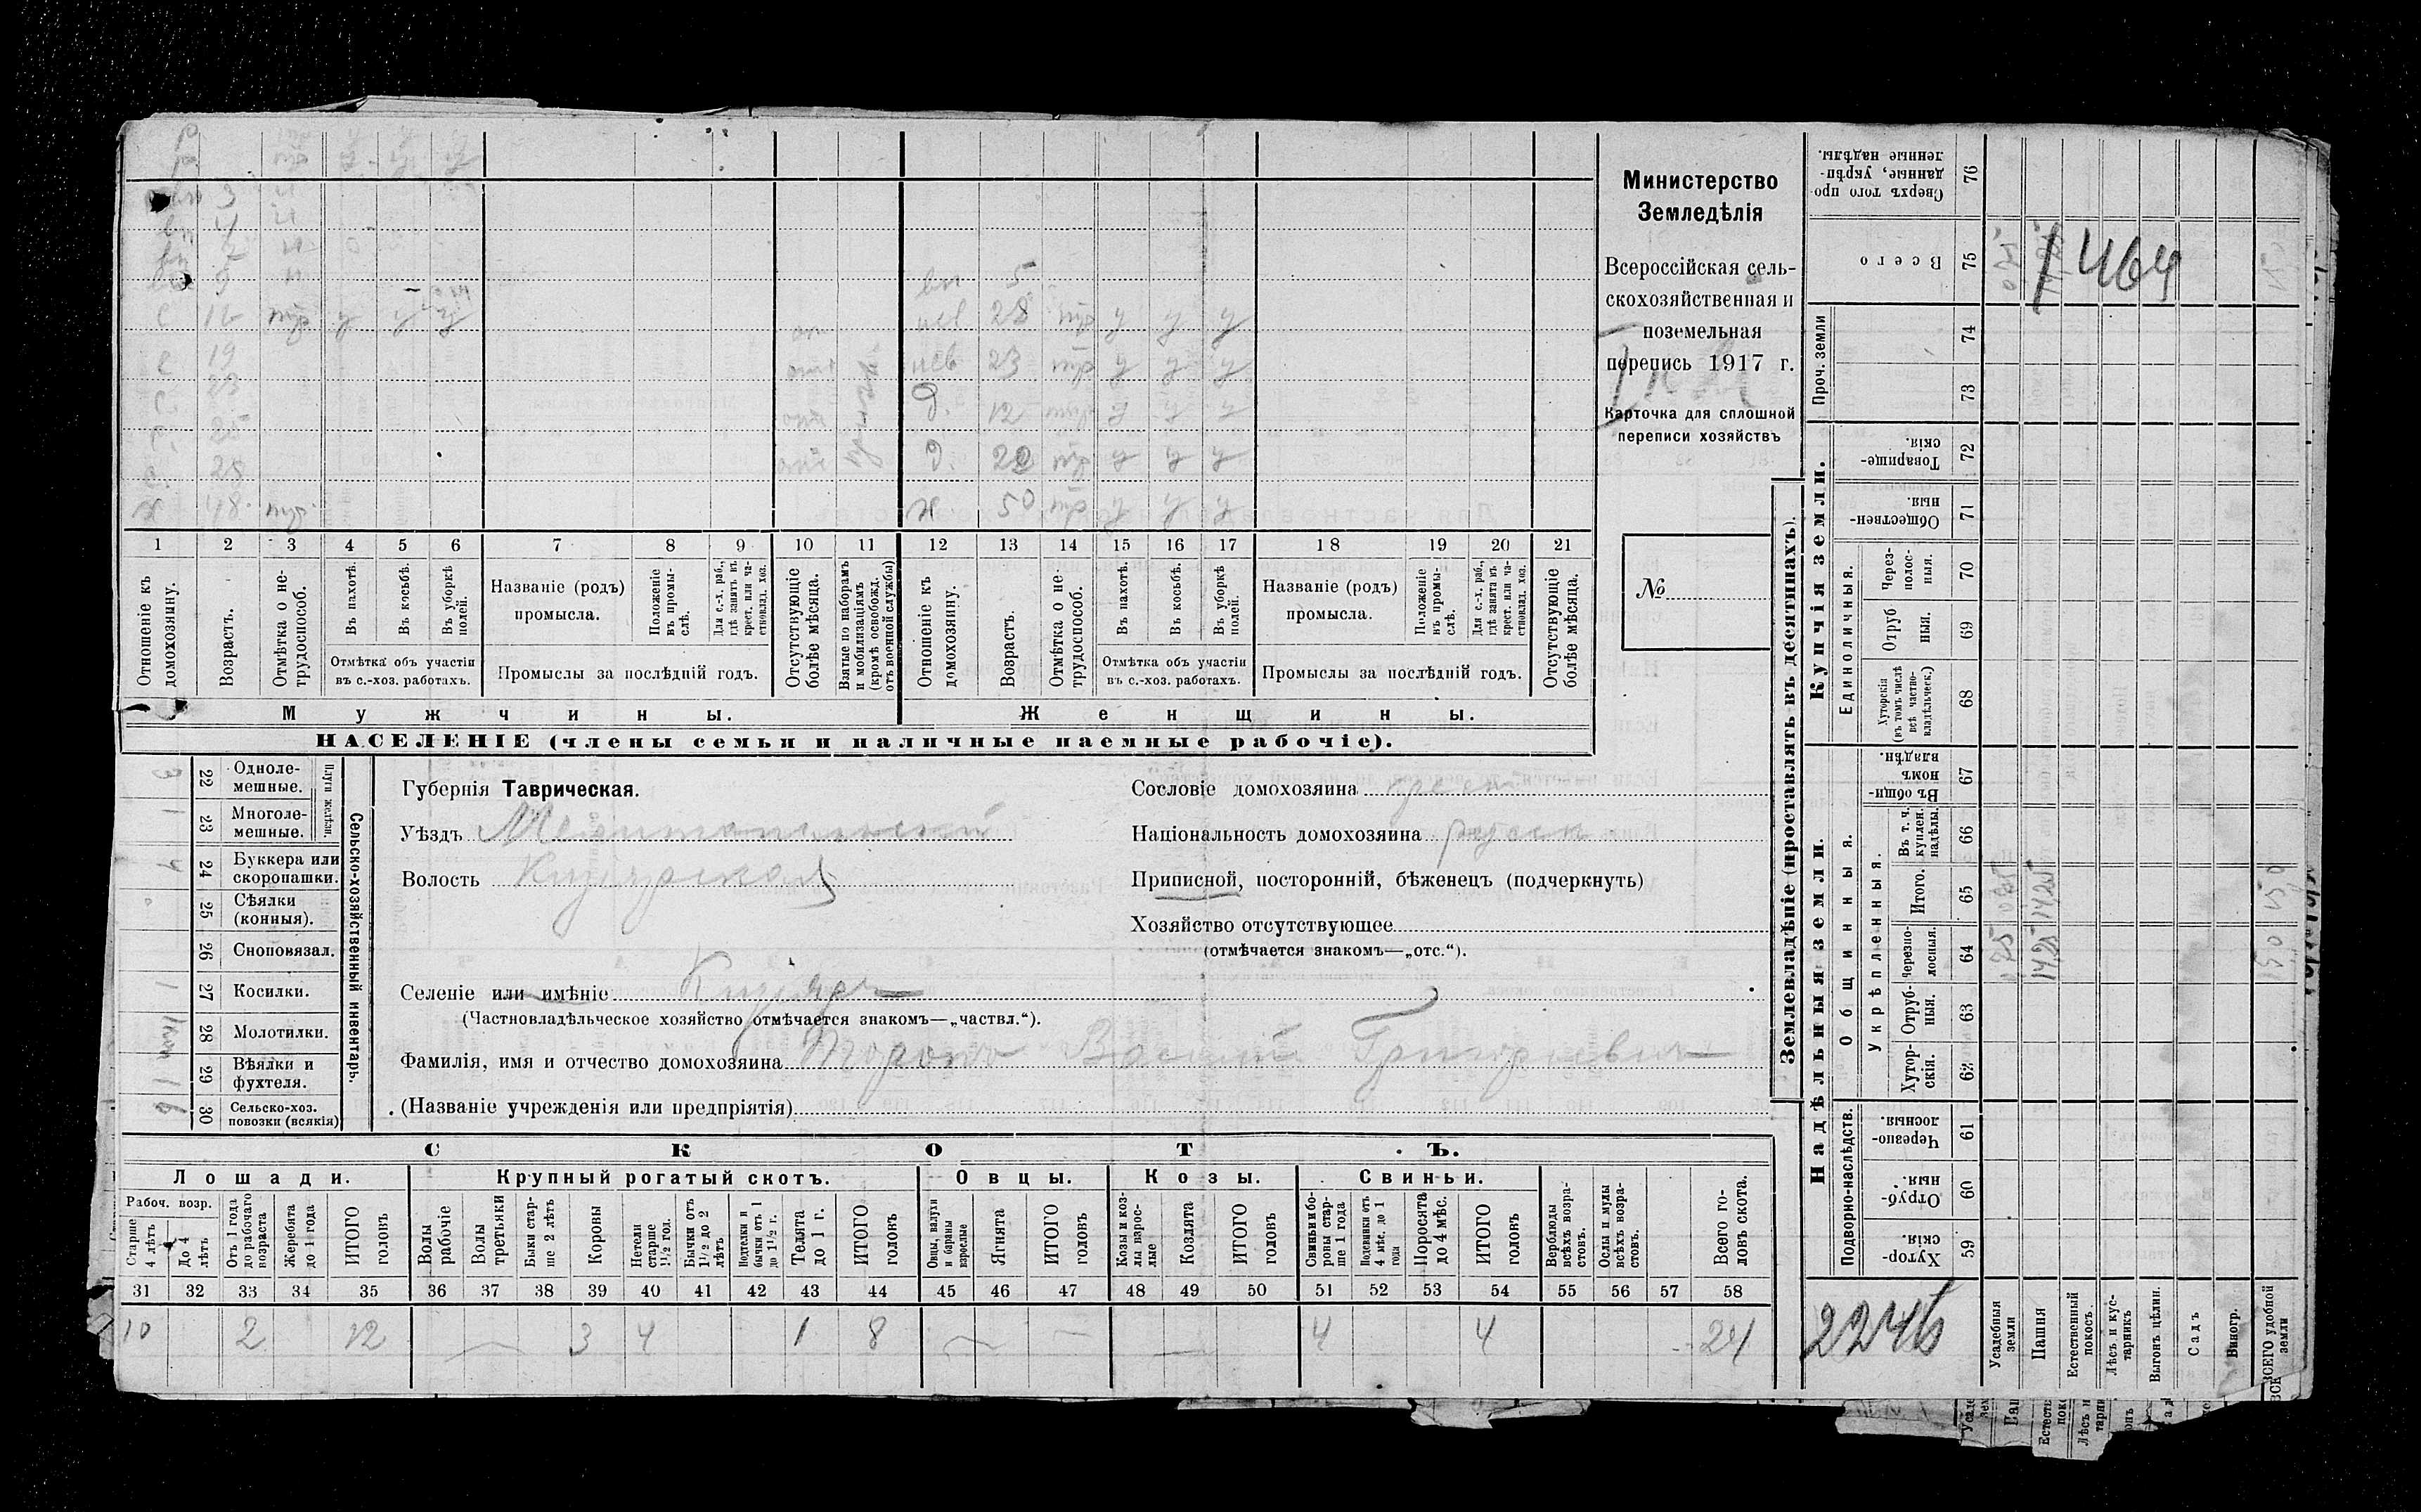 Министерство
Земледѣлія
Всероссійская сель-
скохозяйственная и
поземельная
перепись 1917 г.
Карточка для сплошной
переписи хозяйствъ
№
с 16 тр у у у
с 19
с 23
с 25
с 28
х 48 тр
вн 5
нев 28 тр у у у
нев 23 тр у у у
д. 12 у у у
д. 22 тр у у у
х 50 тр у у у
1 2 3 4 5 6 7 8 9 10 11 12 13 14 15 16 17 18 19 20 21
Отношеніе къ домохозяину.
Возрастъ.
Отмѣтка о не-трудоспособ.
Въ пахотѣ.
Въ косьбѣ.
Въ уборкѣ полей.
Отмѣтка объ участіи
въ с.-хоз. работахъ.
Названіе (родъ)
промысла.
Положеніе въ промы-слѣ.
Для с.-х. раб., гдѣ занятъ въ крест. или ча-стновлад. хоз.
Промыслы за послѣдній годъ.
Отсутствующіе болѣе мѣсяца.
Взятые по наборамъ и мобилизаціямъ (кромѣ освобожд. отъ военной службы)
Отношеніе къ домохозяину.
Возрастъ.
Отмѣтка о не-трудоспособ.
Въ пахотѣ.
Въ косьбѣ.
Въ уборкѣ полей.
Отмѣтка объ участіи
въ с.-хоз. работахъ.
Названіе (родъ)
промысла.
Положеніе въ промы-слѣ.
Для с.-х. раб., гдѣ занята въ крест. или ча-стновлад. хоз.
Промыслы за послѣдній годъ.
Отсутствующіе болѣе мѣсяца.
Мужчины.
Женщины.
НАСЕЛЕНІЕ (члены семьи и наличные наемные рабочіе).
Сельско-хозяйственный инвентарь.
Плуги желѣзн.
22 Одноле-мешные. 3
23 Многоле-мешные. 1
24 Буккера или скоропашки. 4
25 Сѣялки (конныя).
26 Сноповязал.
27 Косилки. 1
28 Молотилки.
29 Вѣялки и фухтеля. 1
30 Сельско-хоз. повозки (всякія) 6
Губернія Таврическая.
Уѣздъ Мелитопольскій
Волость Кизіярская
Сословіе домохозяина крест
Національность домохозяина русск
Приписной, посторонній, бѣженецъ (подчеркнуть)
Хозяйство отсутствующее
(отмѣчается знакомъ—„отс.“).
Селеніе или имѣніе Кизіяръ
(Частновладѣльческое хозяйство отмѣчается знакомъ—„частвл.“).
Фамилія, имя и отчество домохозяина Василій Григорьевичъ
(Названіе учрежденія или предпріятія)
СКОТЪ.
Лошади.
Крупный рогатый скотъ.
Овцы.
Козы.
Свиньи.
Рабоч. возр.
Старше 4 лѣтъ
До 4 лѣтъ
Отъ 1 года до рабочаго возраста
Жеребята до 1 года
ИТОГО головъ
Волы рабочіе
Волы третьяки
Быки стар-ше 2 лѣтъ
Коровы
Нетели старше 1½ год.
Бычки отъ 1½ до 2 лѣтъ
Подтелки и бычки отъ 1 до 1½ г.
Телята до 1 г.
ИТОГО головъ
Овцы, валухи и бараны взрослые
Ягнята
ИТОГО головъ
Козы и коз-лы взрос-лые
Козлята
ИТОГО головъ
Свиньи и бо-ровы стар-ше 1 года
Подсвинки отъ 4 мѣс. до 1 года
Поросята до 4 мѣс.
ИТОГО головъ
Верблюды всѣхъ возра-стовъ.
Ослы и мулы всѣхъ возра-стовъ.
Всего го-ловъ скота.
31 32 33 34 35 36 37 38 39 40 41 42 43 44 45 46 47 48 49 50 51 52 53 54 55 56 57 58
10 2 12 — 3 4 1 8 — — — 4 4 24
Землевладѣніе (проставлять въ десятинахъ).
Купчія земли.
Надѣльныя земли.
Проч. земли
Единоличныя.
Общинныя.
Укрѣпленныя.
Подворно-наслѣдств.
76 Сверхъ того про-данные, укрѣп-ленные надѣлы.
75 Всего
74
73
72 Товарище-скія.
71 Обществен-ныя.
70 Через-полос-ныя.
69 Отруб ныя.
68 Хуторскія (въ томъ числѣ всѣ частно-владѣльческ.)
67 Въ общи-номъ владѣн.
66 Въ т. ч. куплен. надѣлы.
65 Итого.
64 Черезпо-лосныя.
63 Отруб-ныя.
62 Хутор-скія.
61 Черезпо-лосныя.
60 Отруб-ныя.
59 Хутор-скія.
Усадебныя земли
Пашня
Естественный покосъ.
Лѣсъ и кус-тарникъ
Выгонъ цѣлин.
Садъ
Виногр.
ВСЕГО удобной земли
0,75 0,75 0,75
14,25 14,25
15,0 15,0
1464
2246